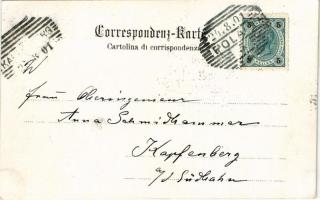 Correspondenz-Karte
Cartolina di corrispondenza
24.8.01
POLA
Frau Oberingenieur
Anna Schmidhammer
Kapfenberg
a/d Südbahn